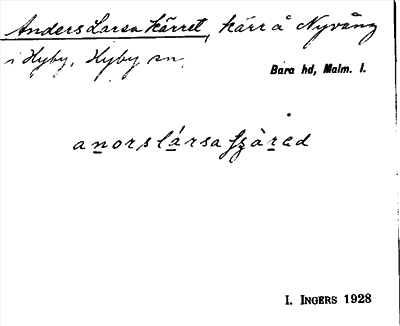 Anders Larsa kärret, kärr å Nyvång
i Hyby, Hyby sn.
Bara hd, Malm. l.
I. INGERS 1928